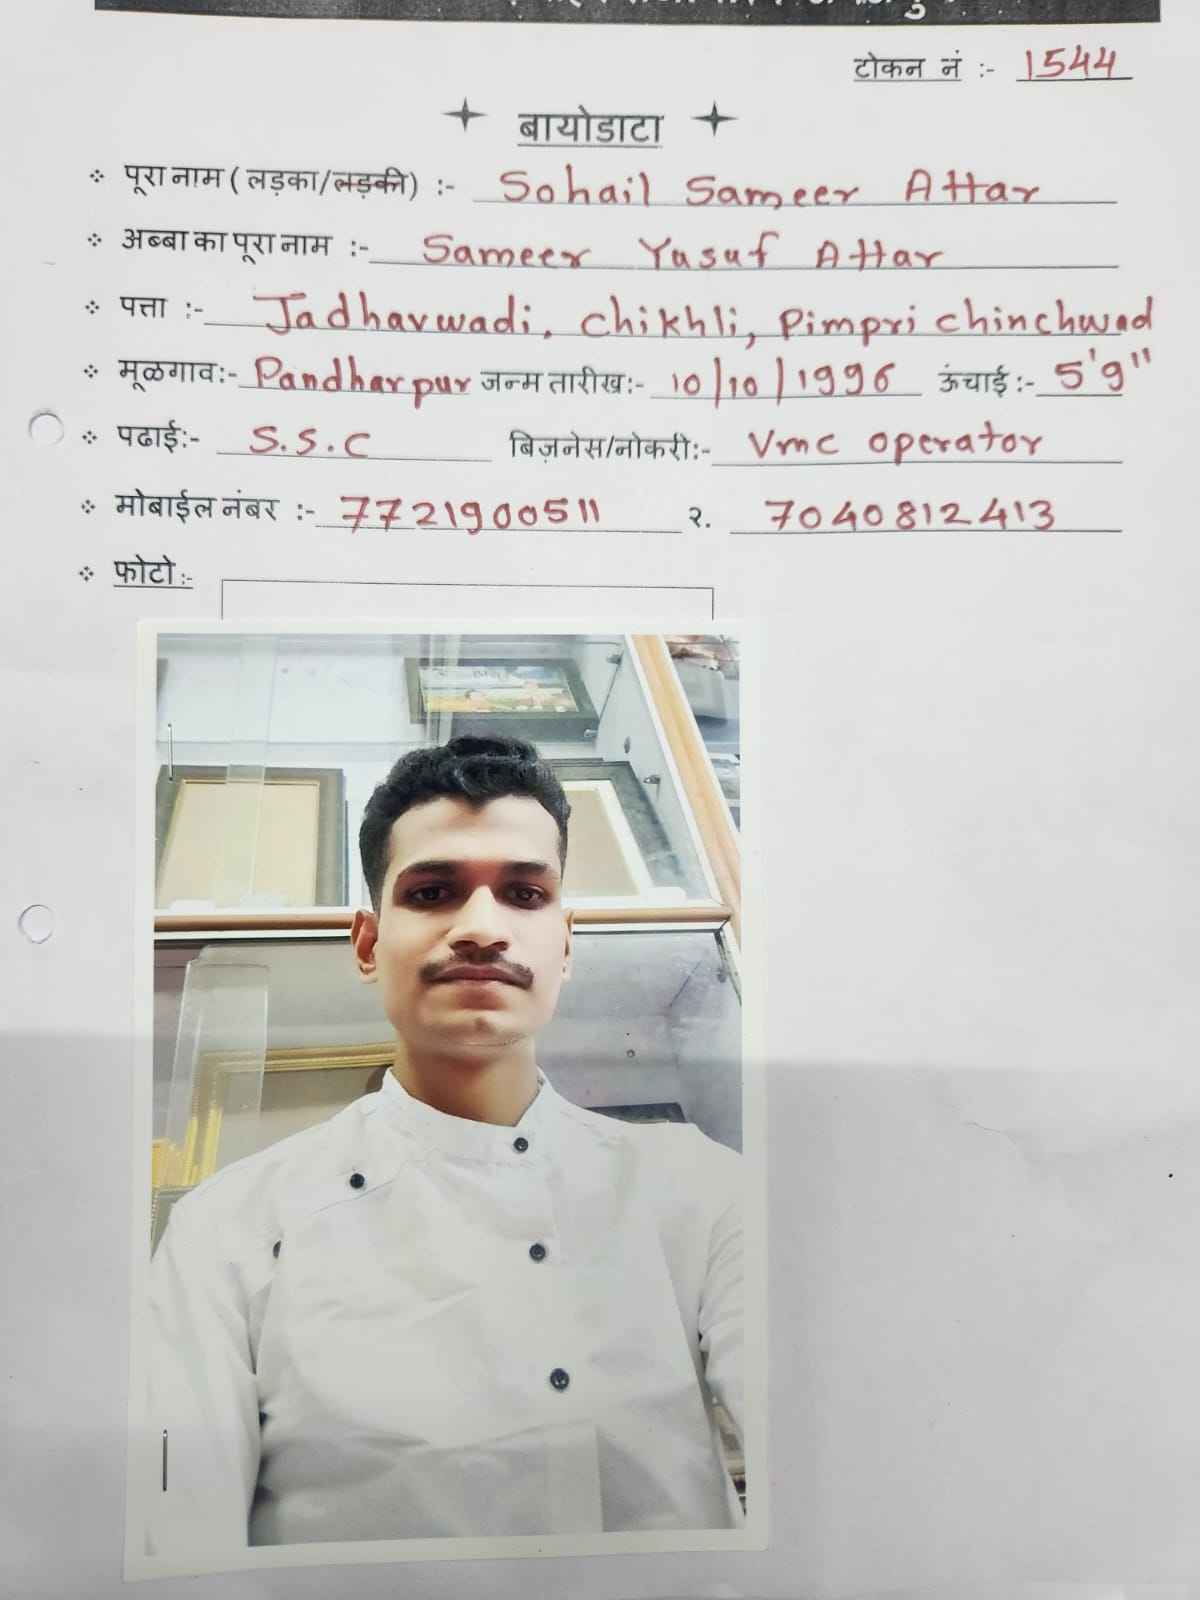 टोकन नं :- 1544
बायोडाटा
पूरा नाम ( लड़का/लड़की) :- Sohail Sameer Attar
अब्बा का पूरा नाम :- Sameer Yusuf Attar
पत्ता :- Jadhavwadi, chikhli, Pimpri chinchwad
मूळगाव:- Pandharpur जन्म तारीख:- 10/10/1996 ऊंचाई :- 5'9"
पढाई:- S.S.C बिज़नेस/नोकरी:- Vmc operator
मोबाईल नंबर :- 7721900511 २. 7040812413
फोटो :-